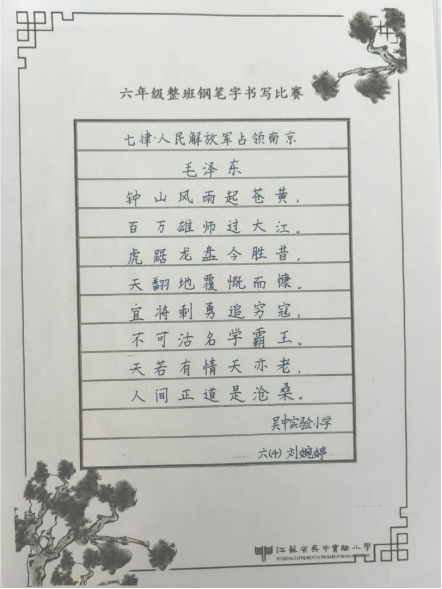 六年级整班钢笔字书写比赛
七律·人民解放军占领南京
毛泽东
钟山风雨起苍黄，
百万雄师过大江。
虎踞龙盘今胜昔，
天翻地覆慨而慷。
宜将剩勇追穷寇，
不可沽名学霸王。
天若有情天亦老，
人间正道是沧桑。
吴中实验小学
六(4) 刘婉婷
江苏省吴中实验小学